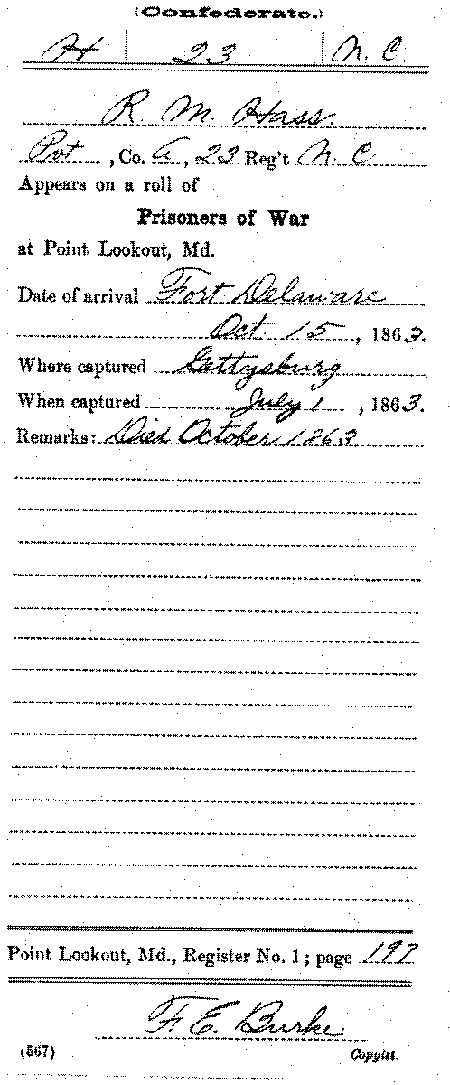 (Confederate.)
H 23 N. C.
R. M. Hass.
Pvt, Co. A, 23 Reg't N. C.
Appears on a roll of
Prisoners of War
at Point Lookout, Md.
Date of arrival Fort Delaware
Oct. 15, 1863.
Where captured Gettysburg
When captured July 1, 1863.
Remarks: Died October 1863
Point Lookout, Md., Register No. 1; page 197
F. E. Burke
(567) Copyist.